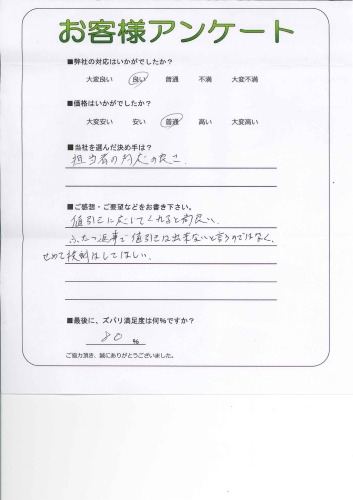 お客様アンケート
■弊社の対応はいかがでしたか？
大変良い 良い 普通 不満 大変不満
■価格はいかがでしたか？
大変安い 安い 普通 高い 大変高い
■当社を選んだ決め手は？
担当者の対応の良さ.
■ご感想・ご要望などをお書き下さい。
値引きに応じてくれると尚良い.
ふたつ返事で値引きは出来ないと言うのではなく、
せめて検討はしてほしい.
■最後に、ズバリ満足度は何%ですか？
80 %
ご協力頂き、誠にありがとうございました。